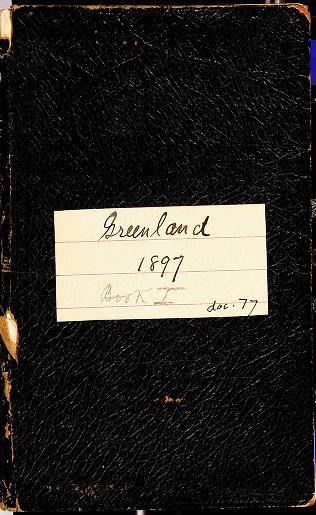 Greenland
1897
Book I
doc. 77